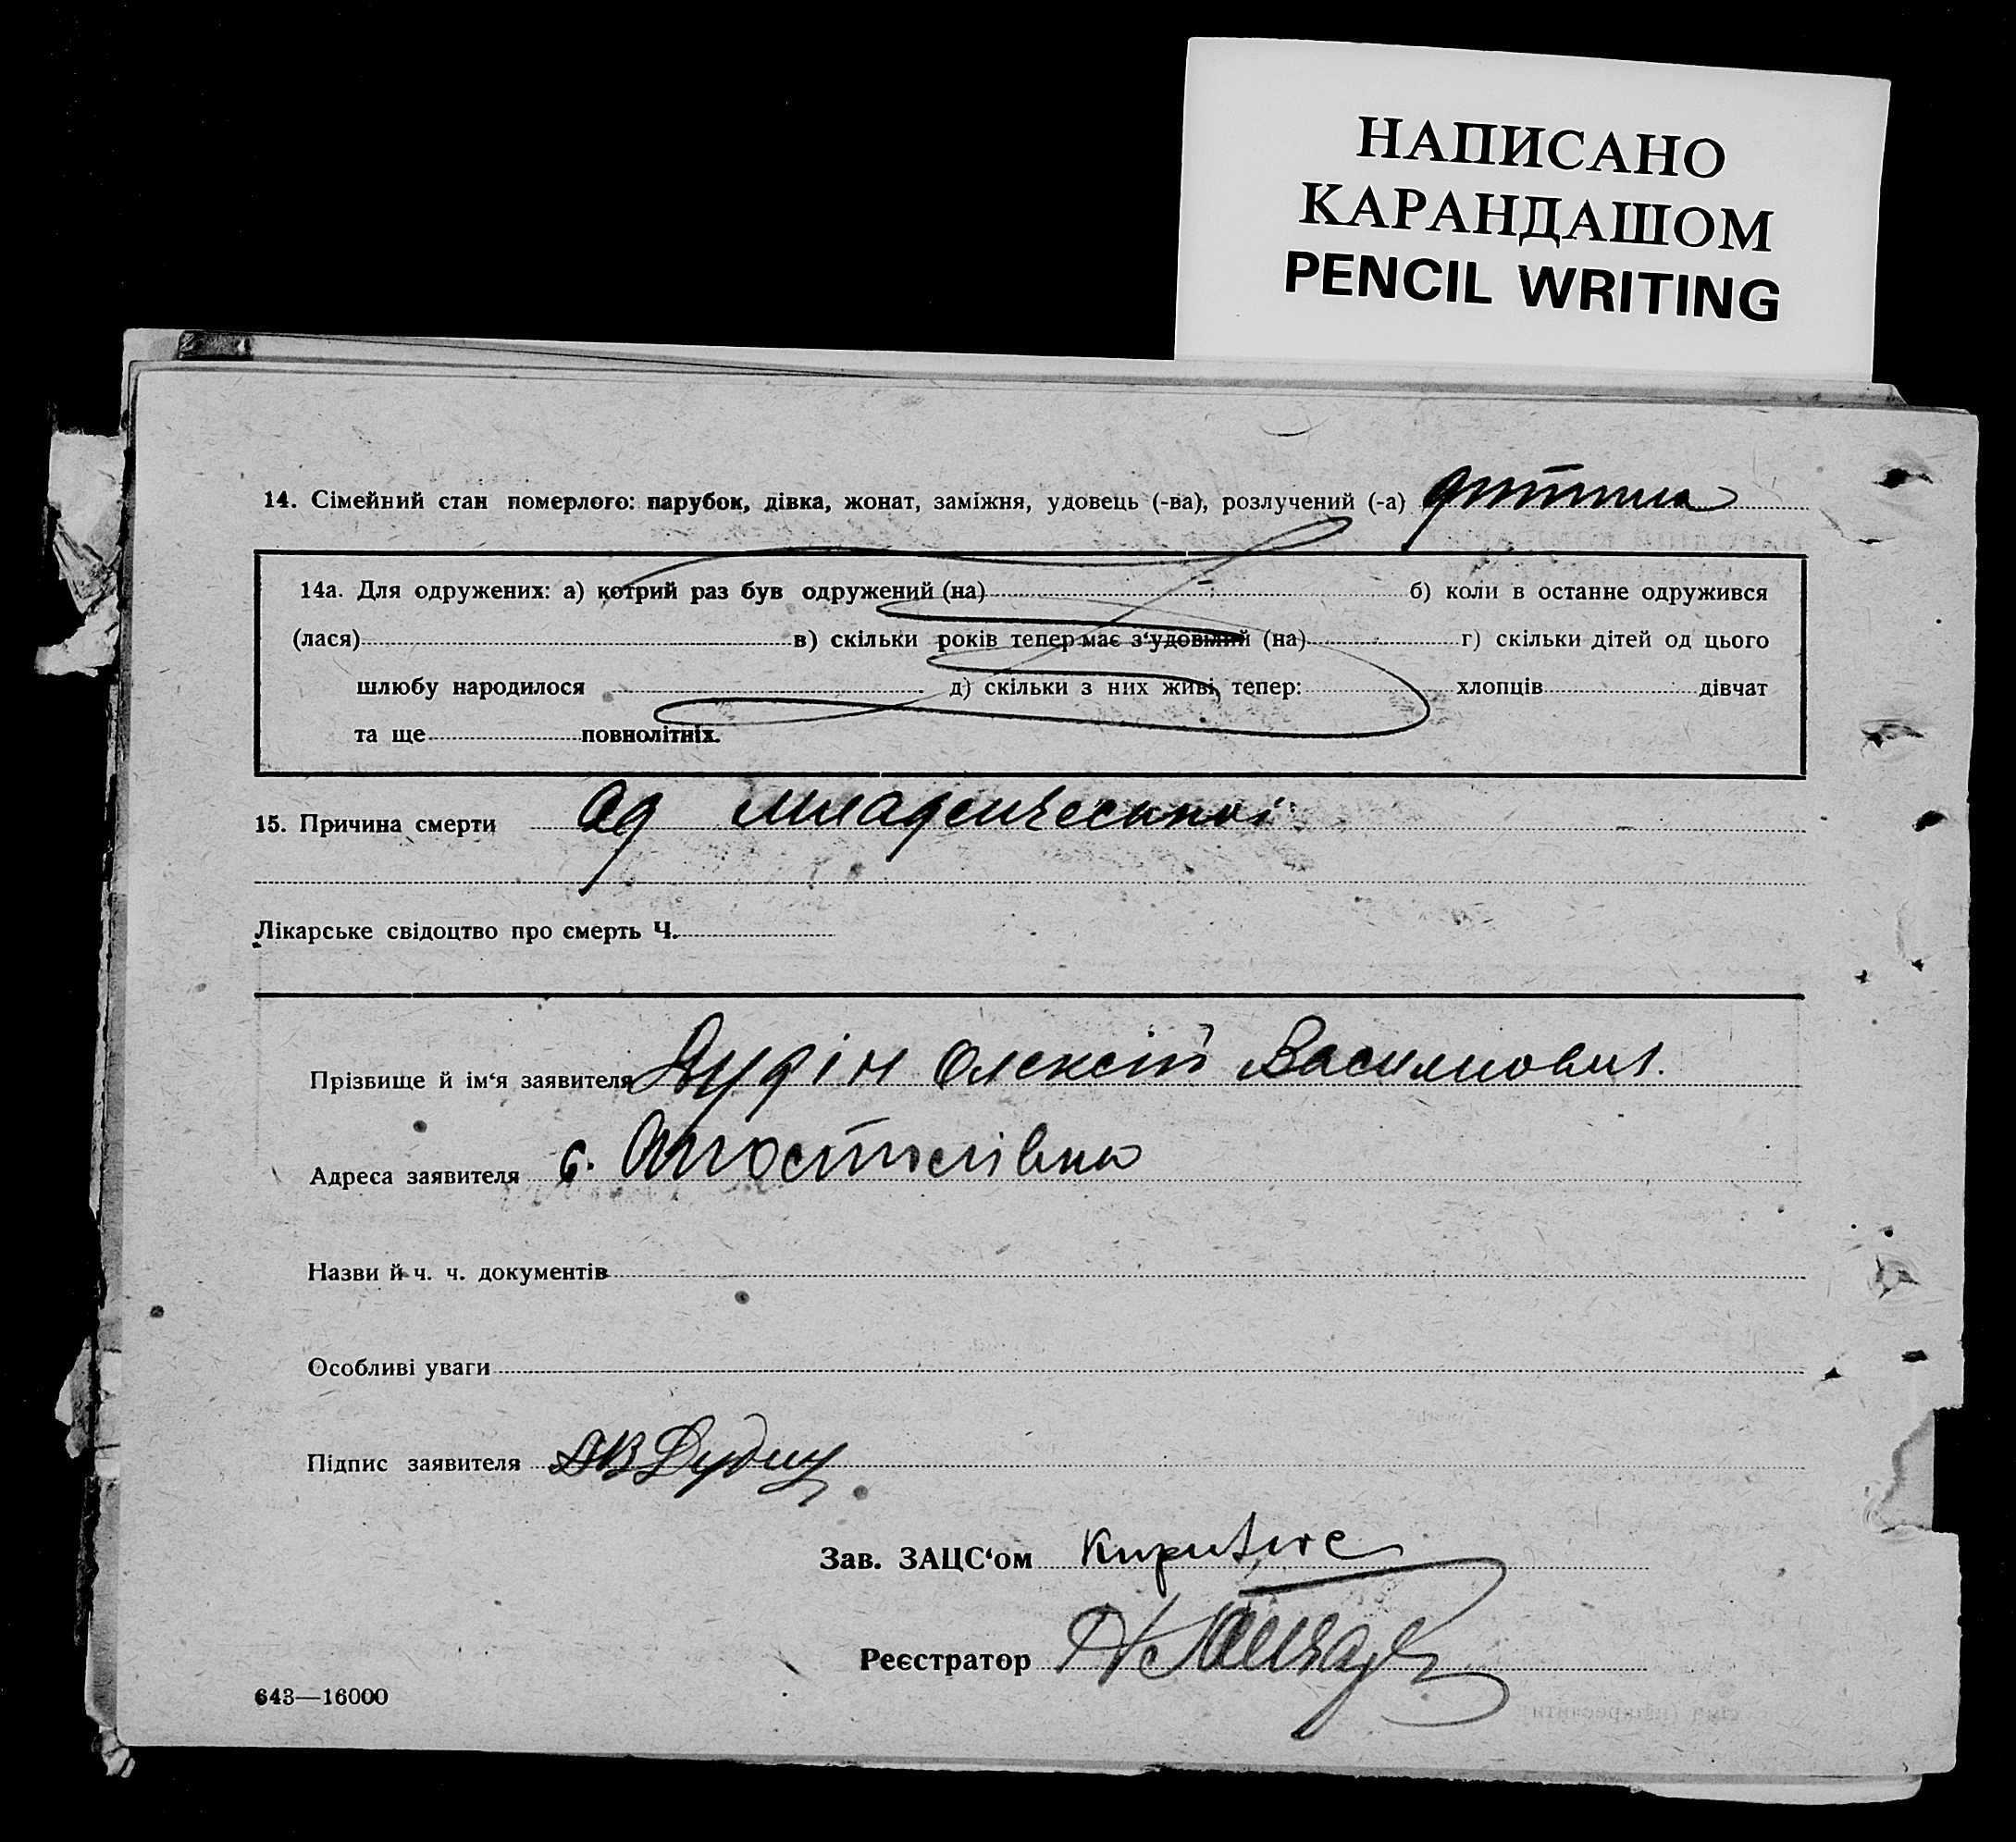 НАПИСАНО
КАРАНДАШОМ
PENCIL WRITING
14. Сімейний стан померлого: парубок, дівка, жонат, заміжня, удовець (-ва), розлучений (-а) дитина
14а. Для одружених: а) котрий раз був одружений (на) б) коли в останнє одружився
(лася) в) скільки років тепер має з‘удовілий (на) г) скільки дітей од цього
шлюбу народилося д) скільки з них живі тепер: хлопців дівчат
та ще повнолітніх.
15. Причина смерти од младенческої
Лікарське свідоцтво про смерть Ч.
Прізвище й ім‘я заявителя Дудін Олексій Василиович.
Адреса заявителя с. Апостолівка
Назви й ч. ч. документів
Особливі уваги
Підпис заявителя АВДудин
Зав. ЗАЦС‘ом
Реєстратор
643—16000